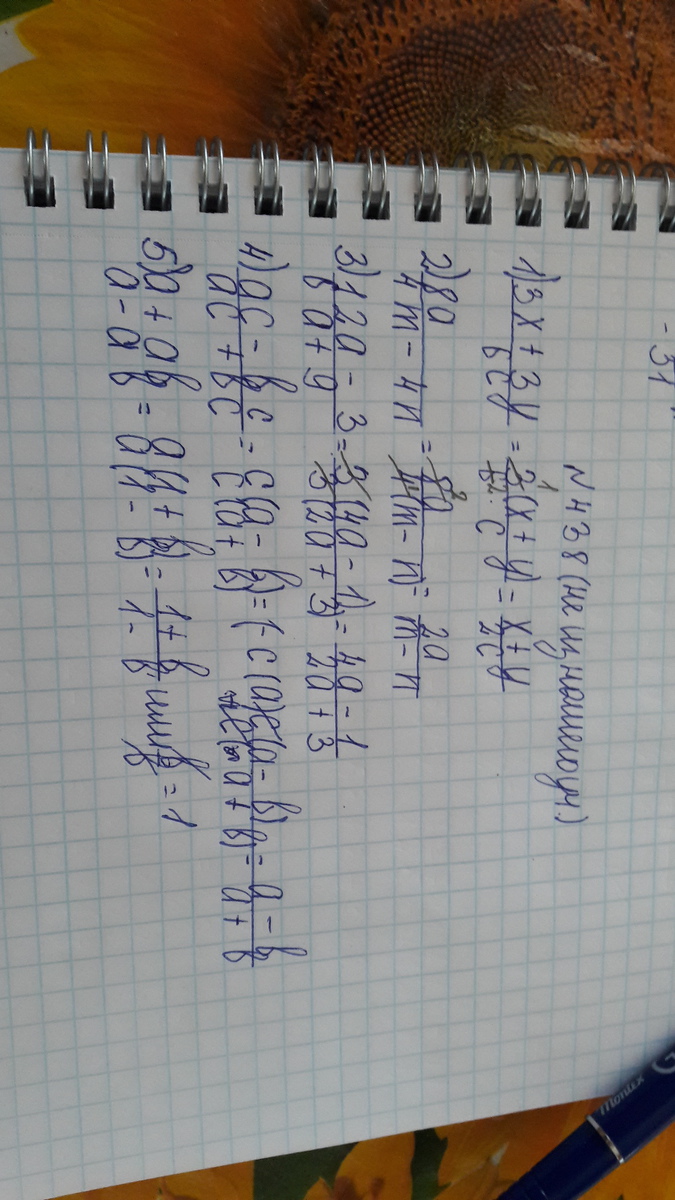 - 31
N 438 (не из нашего уч.)
1) 3x + 3y / 6cy = 3(x + y) / 6 · cy = x + y / 2cy
2) 8a / 4m - 4n = 8a / 4(m - n) = 2a / m - n
3) 12a - 3 / 6a + 9 = 3(4a - 1) / 3(2a + 3) = 4a - 1 / 2a + 3
4) ac - bc / ac + bc = c(a - b) / c(a + b) = c(a - b) / c(a + b) = a - b / a + b
5) a + ab / a - ab = a(1 + b) / a(1 - b) = 1 + b / 1 - b или b / b = 1
Montex